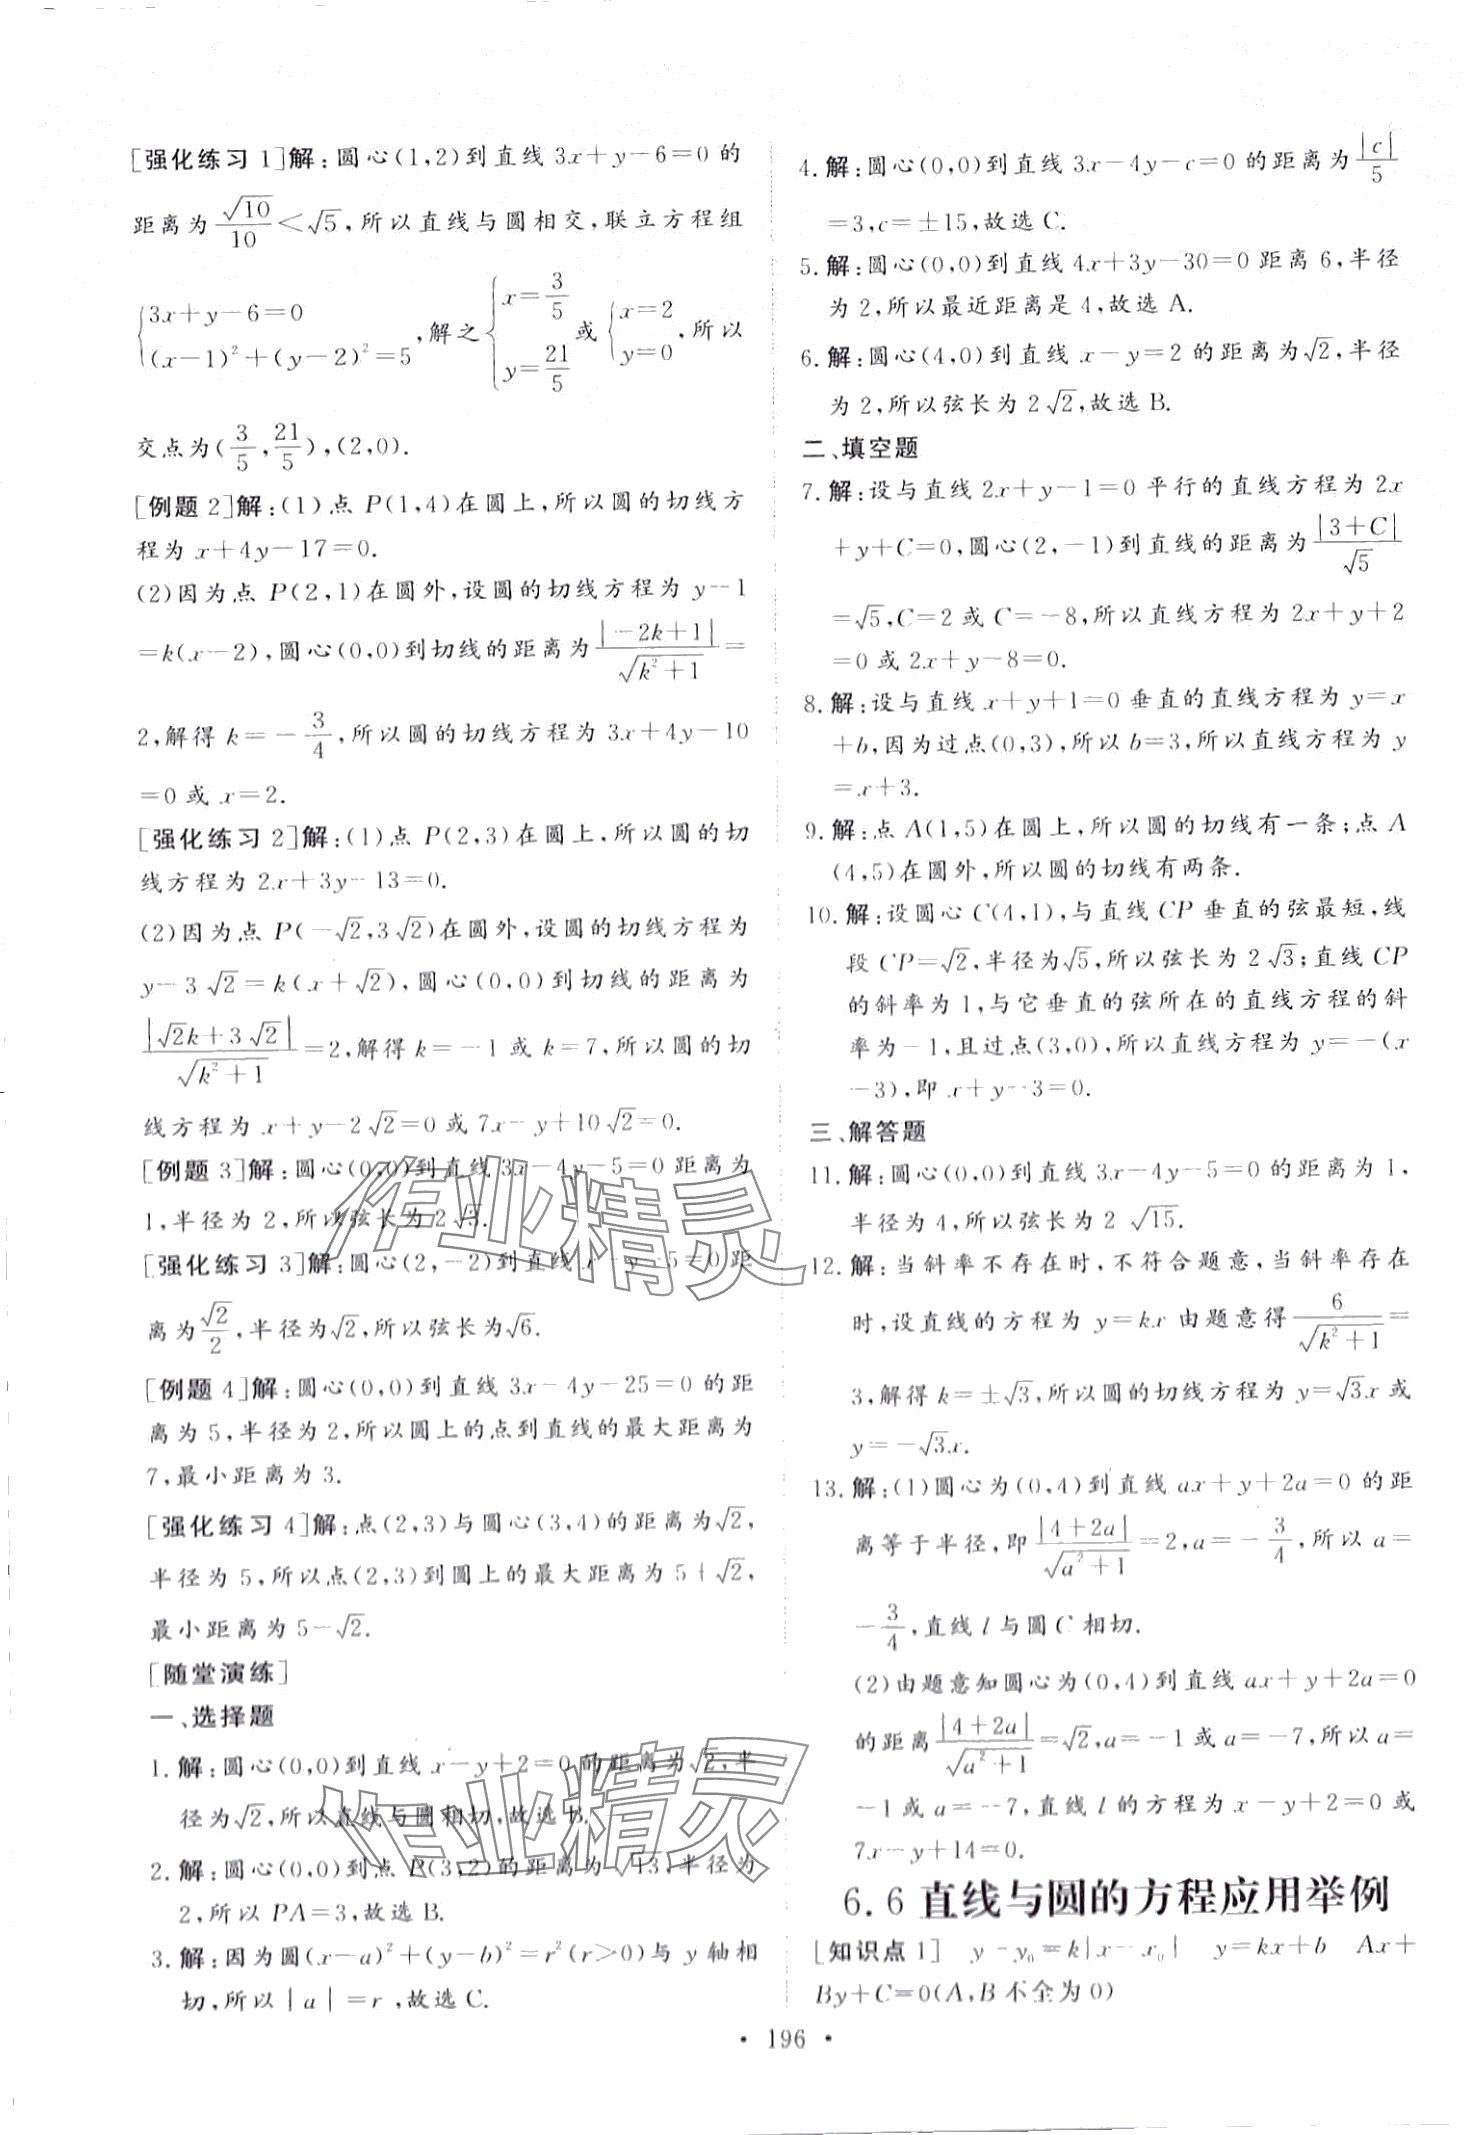 [强化练习 1]解:圆心(1,2)到直线 3x+y-6=0 的
距离为 √10/10 < √5,所以直线与圆相交,联立方程组
{3x+y-6=0, (x-1)²+(y-2)²=5, 解之 {x=3/5, y=21/5 或 {x=2, y=0, 所以
交点为(3/5, 21/5),(2,0).
[例题 2]解:(1)点 P(1,4)在圆上,所以圆的切线方
程为 x+4y-17=0.
(2)因为点 P(2,1)在圆外,设圆的切线方程为 y-1
=k(x-2),圆心(0,0)到切线的距离为 |-2k+1|/√(k²+1) =
2,解得 k=-3/4,所以圆的切线方程为 3x+4y-10
=0 或 x=2.
[强化练习 2]解:(1)点 P(2,3)在圆上,所以圆的切
线方程为 2x+3y-13=0.
(2)因为点 P(-√2,3√2)在圆外,设圆的切线方程为
y-3√2=k(x+√2),圆心(0,0)到切线的距离为
|√2k+3√2|/√(k²+1) =2,解得 k=-1 或 k=7,所以圆的切
线方程为 x+y-2√2=0 或 7x-y+10√2=0.
[例题 3]解:圆心(0,0)到直线 3x-4y-5=0 距离为
1,半径为 2,所以弦长为 2√3.
[强化练习 3]解:圆心(2,-2)到直线 x-y-5=0 距
离为 √2/2,半径为√2,所以弦长为√6.
[例题 4]解:圆心(0,0)到直线 3x-4y-25=0 的距
离为 5,半径为 2,所以圆上的点到直线的最大距离为
7,最小距离为 3.
[强化练习 4]解:点(2,3)与圆心(3,4)的距离为√2,
半径为 5,所以点(2,3)到圆上的最大距离为 5+√2,
最小距离为 5-√2.
[随堂演练]
一、选择题
1.解:圆心(0,0)到直线 x-y+2=0 的距离为√2,半
径为√2,所以直线与圆相切,故选 B.
2.解:圆心(0,0)到点 P(3,2)的距离为√13,半径为
2,所以 PA=3,故选 B.
3.解:因为圆(x-a)²+(y-b)²=r²(r>0)与 y 轴相
切,所以|a|=r,故选 C.
4.解:圆心(0,0)到直线 3x-4y-c=0 的距离为 |c|/5
=3,c=±15,故选 C.
5.解:圆心(0,0)到直线 4x+3y-30=0 距离 6,半径
为 2,所以最近距离是 4,故选 A.
6.解:圆心(4,0)到直线 x-y=2 的距离为√2,半径
为 2,所以弦长为 2√2,故选 B.
二、填空题
7.解:设与直线 2x+y-1=0 平行的直线方程为 2x
+y+C=0,圆心(2,-1)到直线的距离为 |3+C|/√5
=√5,C=2 或 C=-8,所以直线方程为 2x+y+2
=0 或 2x+y-8=0.
8.解:设与直线 x+y+1=0 垂直的直线方程为 y=x
+b,因为过点(0,3),所以 b=3,所以直线方程为 y
=x+3.
9.解:点 A(1,5)在圆上,所以圆的切线有一条;点 A
(4,5)在圆外,所以圆的切线有两条.
10.解:设圆心 C(4,1),与直线 CP 垂直的弦最短,线
段 CP=√2,半径为√5,所以弦长为 2√3;直线 CP
的斜率为 1,与它垂直的弦所在的直线方程的斜
率为-1,且过点(3,0),所以直线方程为 y=-(x
-3),即 x+y-3=0.
三、解答题
11.解:圆心(0,0)到直线 3x-4y-5=0 的距离为 1,
半径为 4,所以弦长为 2 √15.
12.解:当斜率不存在时,不符合题意,当斜率存在
时,设直线的方程为 y=kx 由题意得 6/√(k²+1) =
3,解得 k=±√3,所以圆的切线方程为 y=√3x 或
y=-√3x.
13.解:(1)圆心为(0,4)到直线 ax+y+2a=0 的距
离等于半径,即 |4+2a|/√(a²+1) =2,a=-3/4,所以 a=
-3/4,直线 l 与圆 C 相切.
(2)由题意知圆心为(0,4)到直线 ax+y+2a=0
的距离 |4+2a|/√(a²+1) =√2,a=-1 或 a=-7,所以 a=
-1 或 a=-7,直线 l 的方程为 x-y+2=0 或
7x-y+14=0.
6.6 直线与圆的方程应用举例
[知识点 1] y-y₀=k|x-x₀| y=kx+b Ax+
By+C=0(A,B 不全为 0)
• 196 •
作业精灵
作业精灵